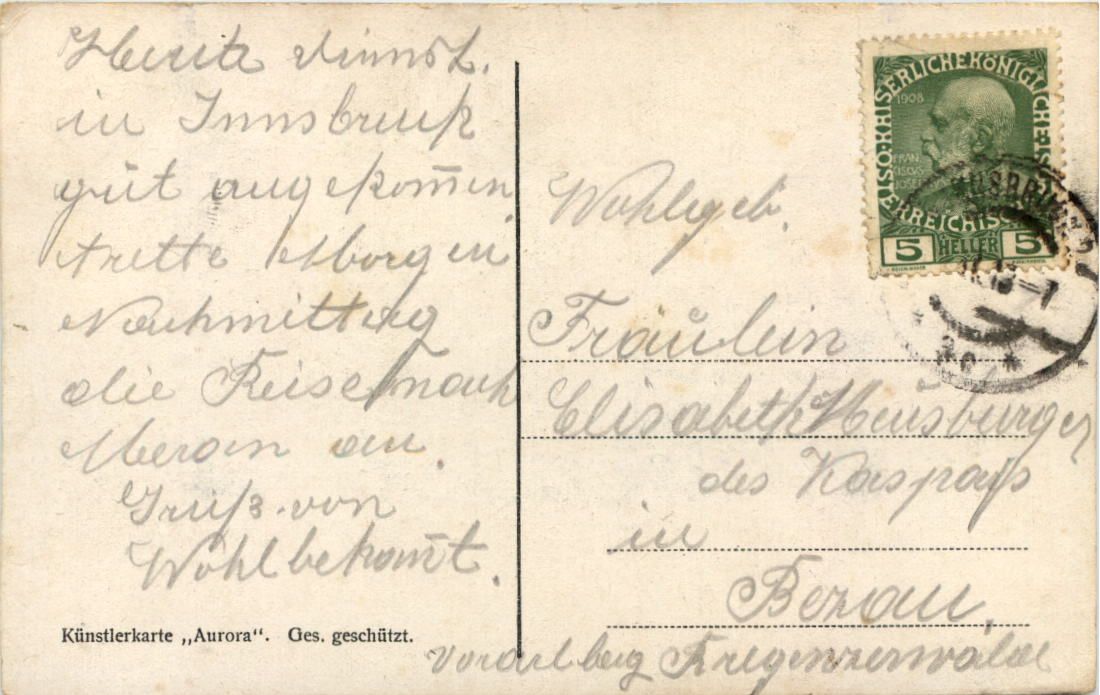 Heute
in Innsbruck
gut angekom̅en
trette Morgen
Nachmittag
die Reise nach
Meran an.
Gruß von
Wohlbekan̅t.
Künstlerkarte „Aurora“. Ges. geschützt.
KAISERLICHE KÖNIGLICHE ÖSTERREICHISCHE
1908
FRAN
CISCVS
JOSEPH
5 HELLER 5
Wohlgeb.
Fräulein
Elisabeth
des Kaspars
in
Bezau,
Vorarlberg Bregenzerwalde